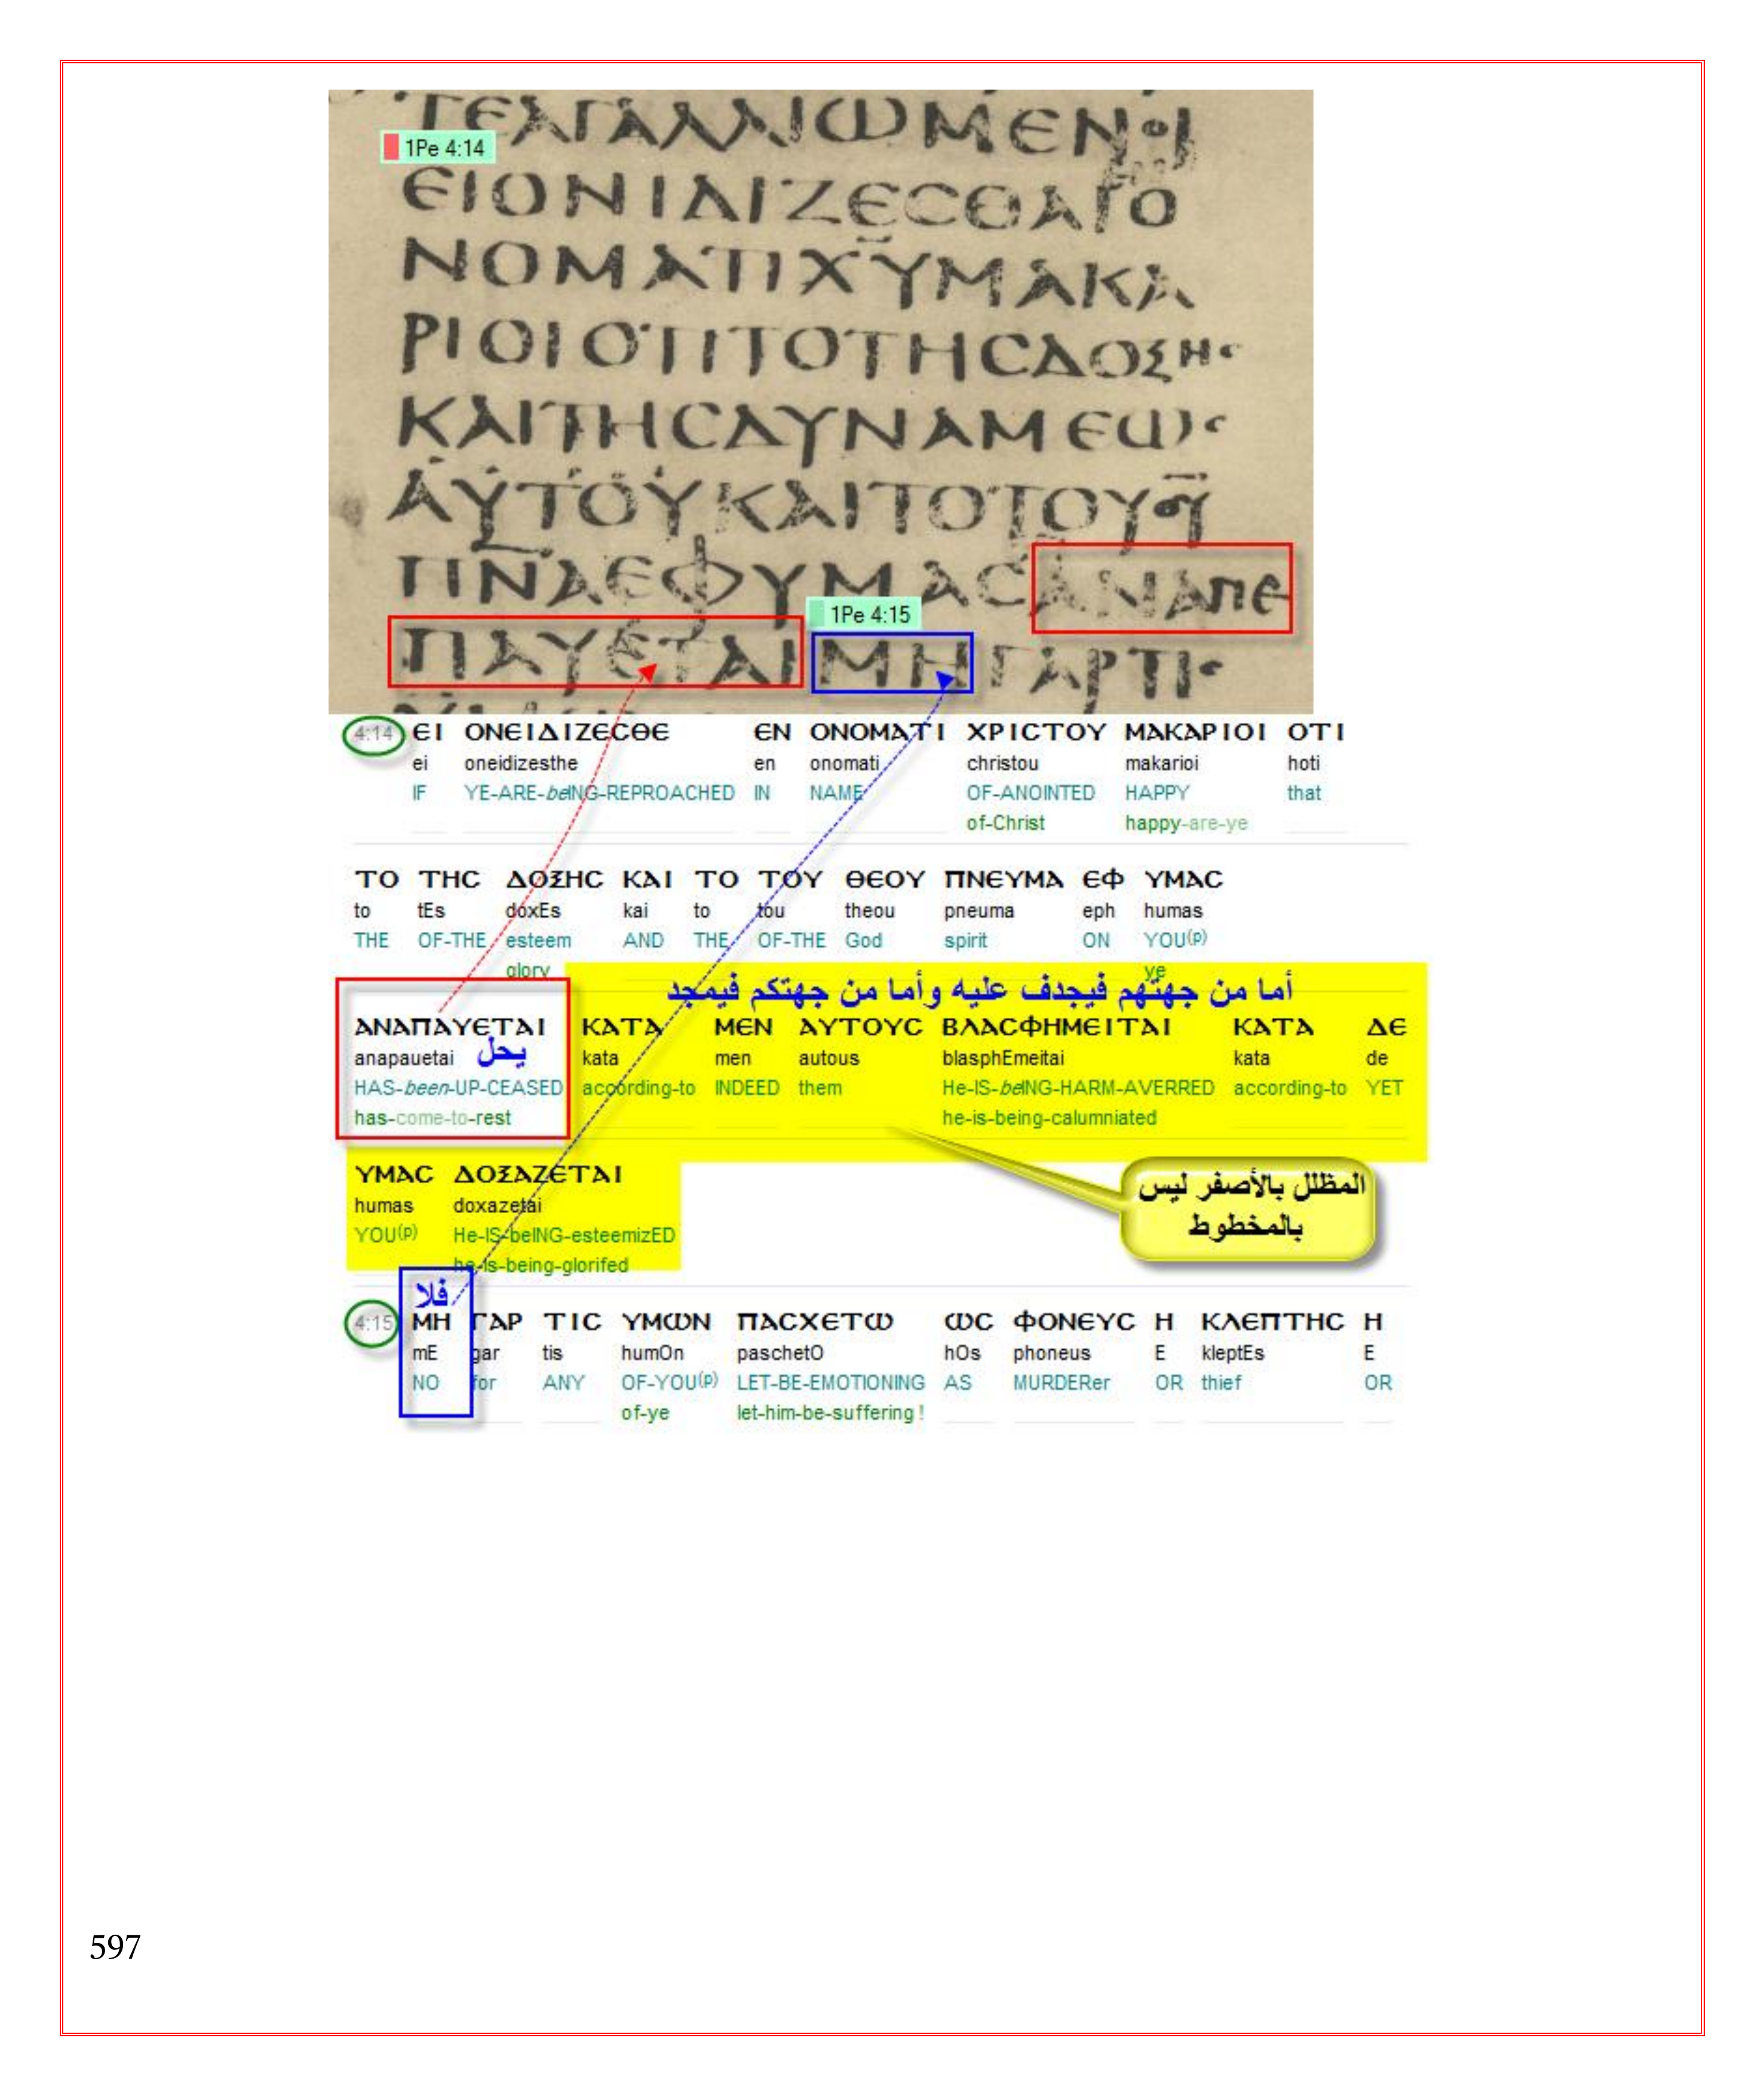 ΤΕΑΓΑΛΛΙΩΜΕΝΟΙ
1Pe 4:14
ΕΙΟΝΙΔΙΖΕCΘΑΙ
ΝΟΜΑΤΙΧΥΜΑΚΑ
ΡΙΟΙΟΤΙΤΟΤΗCΔΟΞΗC
ΚΑΙΤΗCΔΥΝΑΜΕΩC
ΑΥΤΟΥΚΑΙΤΟΤΟΥΘΥ
ΠΝΑΕΦΥΜΑCΑΝΑΠΕ
1Pe 4:15
ΠΑΥΕΤΑΙΜΗΓΑΡΤΙC
4:14 ΕΙ ΟΝΕΙΔΙΖΕCΘΕ ΕΝ ΟΝΟΜΑΤΙ ΧΡΙCΤΟΥ ΜΑΚΑΡΙΟΙ ΟΤΙ
ei oneidizesthe en onomati christou makarioi hoti
IF YE-ARE-beING-REPROACHED IN NAME OF-ANOINTED HAPPY that
of-Christ happy-are-ye
ΤΟ ΤΗC ΔΟΞΗC ΚΑΙ ΤΟ ΤΟΥ ΘΕΟΥ ΠΝΕΥΜΑ ΕΦ ΥΜΑC
to tEs doxEs kai to tou theou pneuma eph humas
THE OF-THE esteem AND THE OF-THE God spirit ON YOU(p)
glory ye
أما من جهتهم فيجدف عليه وأما من جهتكم فيمجد
ΑΝΑΠΑΥΕΤΑΙ ΚΑΤΑ ΜΕΝ ΑΥΤΟΥC ΒΛΑCΦΗΜΕΙΤΑΙ ΚΑΤΑ ΔΕ
anapauetai يحل kata men autous blasphEmeitai kata de
HAS-been-UP-CEASED according-to INDEED them He-IS-beING-HARM-AVERRED according-to YET
has-come-to-rest he-is-being-calumniated
ΥΜΑC ΔΟΞΑΖΕΤΑΙ
humas doxazetai
YOU(p) He-IS-beING-esteemizED
he-is-being-glorifed
المظلل بالأصفر ليس
بالمخطوط
فلا
4:15 ΜΗ ΓΑΡ ΤΙC ΥΜΩΝ ΠΑCΧΕΤΩ ΩC ΦΟΝΕΥC Η ΚΛΕΠΤΗC Η
mE gar tis humOn paschetO hOs phoneus E kleptEs E
NO for ANY OF-YOU(p) LET-BE-EMOTIONING AS MURDERer OR thief OR
of-ye let-him-be-suffering !
597